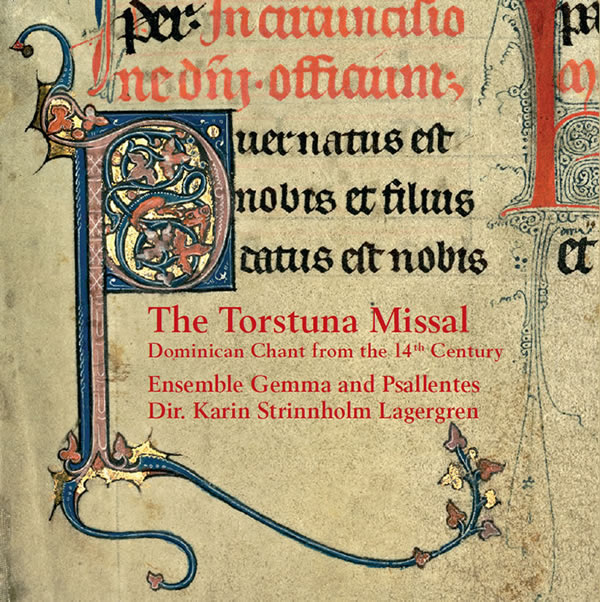 per. In circuncisio
ne dñj. officium;
Puer natus est
nobis et filius
datus est nobis
et
The Torstuna Missal
Dominican Chant from the 14th Century
Ensemble Gemma and Psallentes
Dir. Karin Strinnholm Lagergren